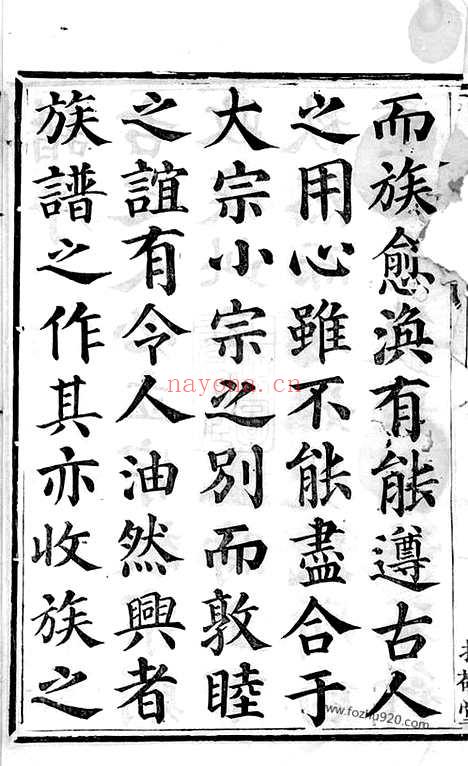 而族愈渙有能遵古人
之用心雖不能盡合于
大宗小宗之別而敦睦
之誼有令人油然興者
族譜之作其亦收族之
nayona.cn
www.fozhu920.com